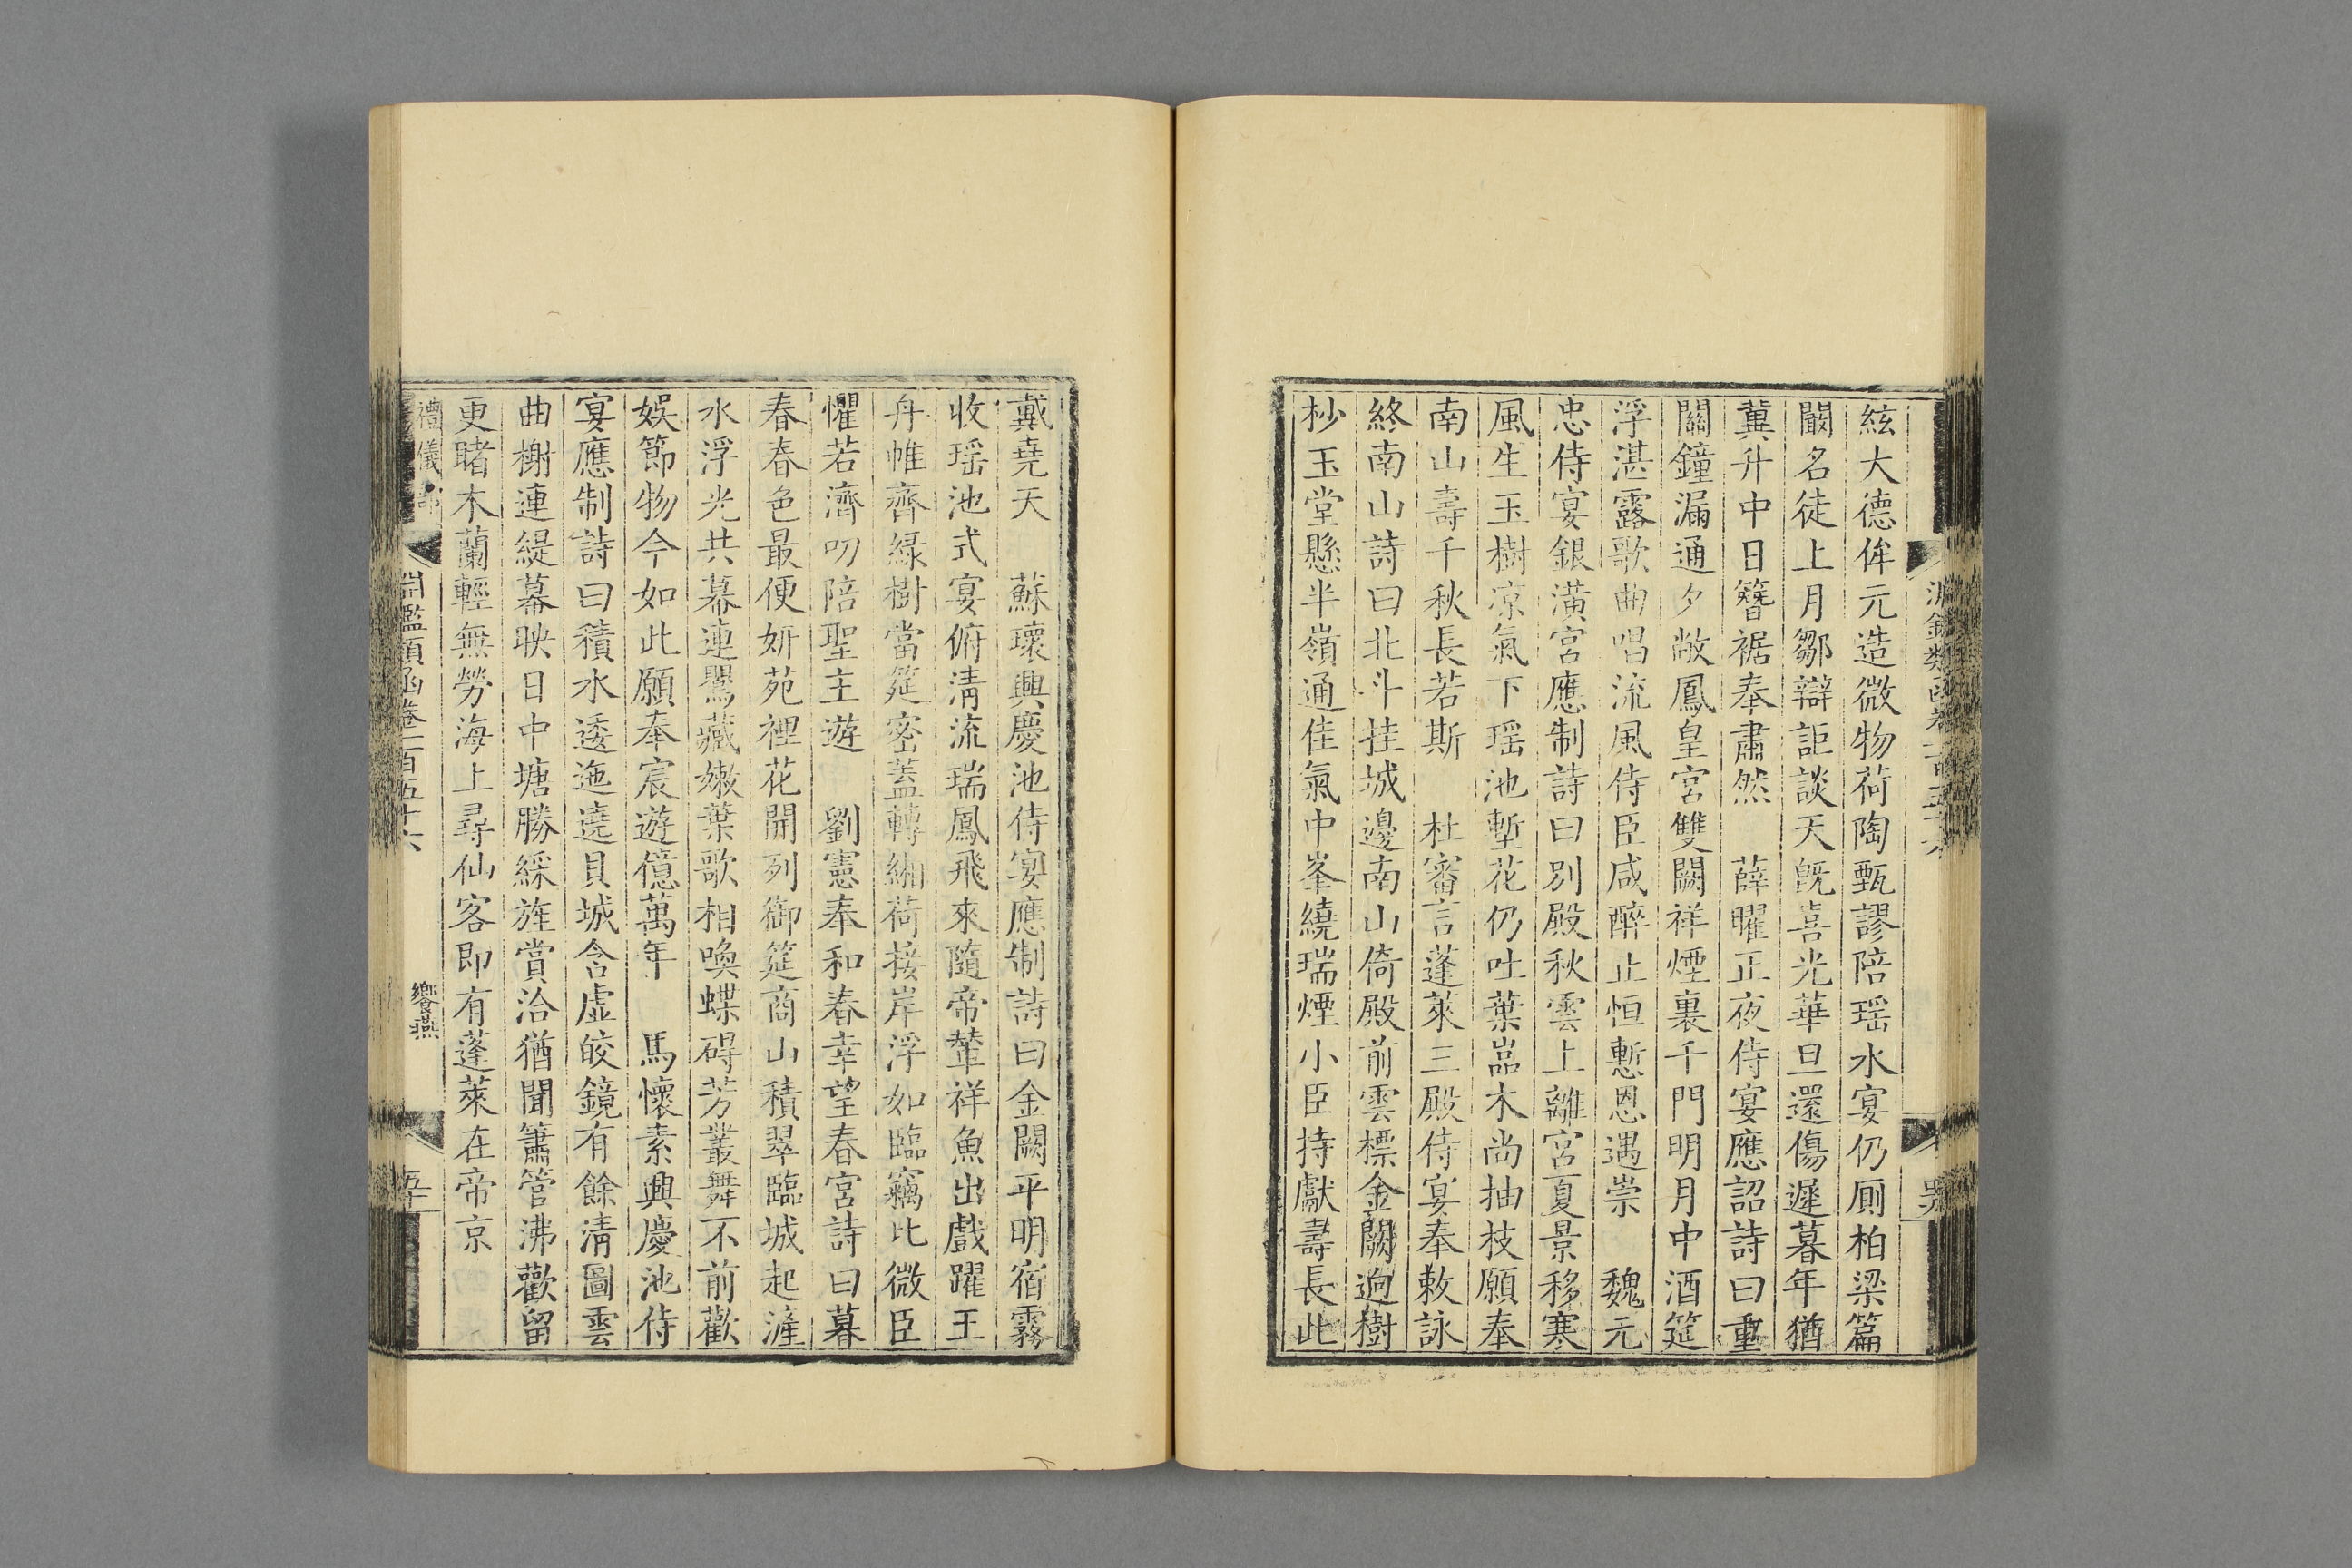 絃大德侔元造微物荷陶甄謬陪瑶水宴仍厠柏梁篇
闞名徒上月鄒辯詎談天旣喜光華旦還傷遲暮年猶
冀升中日簪裾奉肅然　薛曜正夜侍宴應詔詩曰重
關鐘漏通夕敞鳳皇宮雙闕祥煙裏千門明月中酒筵
浮湛露歌曲唱流風侍臣咸醉止恒慙恩遇崇　魏元
忠侍宴銀潢宮應制詩曰別殿秋雲上離宮夏景移寒
風生玉樹涼氣下瑶池塹花仍吐葉嵓木尚抽枝願奉
南山壽千秋長若斯　杜審言蓬萊三殿侍宴奉敕詠
終南山詩曰北斗挂城邊南山倚殿前雲標金闕逈樹
杪玉堂懸半嶺通佳氣中峯繞瑞煙小臣持獻壽長此
戴堯天　蘇瓌興慶池侍宴應制詩曰金闕平明宿霧
收瑶池式宴俯淸流瑞鳳飛來隨帝輦祥魚出戲躍王
舟帷齊綠樹當筵密蓋轉緗荷接岸浮如臨竊比微臣
懼若濟叨陪聖主遊　劉憲奉和春幸望春宮詩曰暮
春春色最便姸苑裡花開列御筵商山積翠臨城起滻
水浮光共幕連鸎藏嫩葉歌相喚蝶碍芳叢舞不前歡
娛節物今如此願奉宸遊億萬年　馬懷素興慶池侍
宴應制詩曰積水逶迤遶直城含虛皎鏡有餘淸圖雲
曲榭連緹幕映日中塘勝綵旌賞洽猶聞簫管沸歡留
更睹木蘭輕無勞海上尋仙客卽有蓬萊在帝京
禮儀部　淵鑑類函卷一百五十六　饗燕　五十